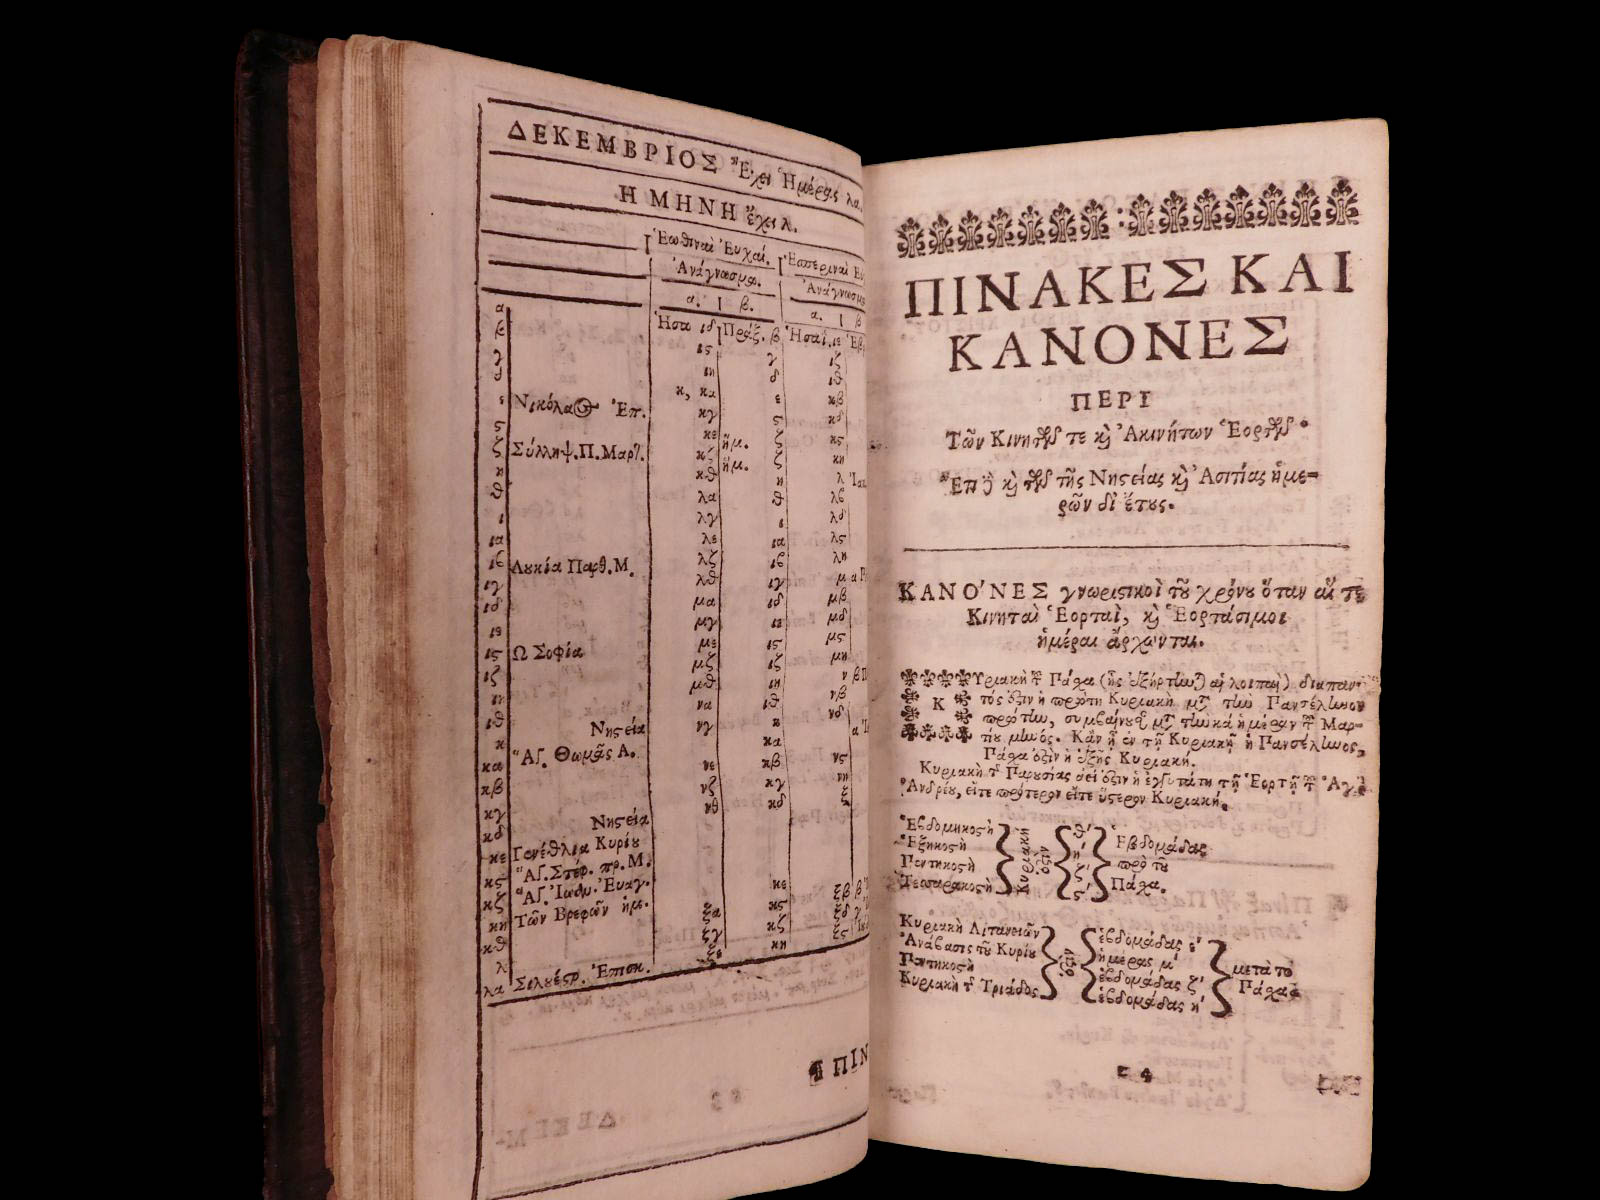 ΔΕΚΕΜΒΡΙΟΣ Ἔχει Ἡμέρας λα.
Η ΜΗΝΗ ἔχει λ.
Ἑωθιναὶ Εὐχαί. Ἑσπεριναὶ
Ἀνάγνωσμα. Ἀνάγνωσμ
α. β. α. β
α Ἡσα ιδ Πράξ. β Ἡσαΐ. ιε Ἑβ
β ις γ ιζ
γ ιη δ ιθ
δ κ, κα ε κβ
ε Νικόλαος Ἐπ. κγ ς κδ
ς κε ἥμ. ζ κς
ζ Σύλληψ. Π. Μαρί. κζ ἥμ. ζ κη
η κθ η λ Ἰακ
θ λα θ λβ
ι λγ ι λδ
ια λε ια λς
ιβ Λυκία Παρθ. Μ. λζ ιβ λη
ιγ λθ ιγ μ α
ιδ μα ιδ μβ
ιε μγ ιε μδ
ις Ω Σοφία με ις μς
ιζ μζ ιζ μη
ιη μθ ιη ν β Π
ιθ να ιθ νβ
κ Νηστεία νγ κ νδ α
κα Ἅγ. Θωμᾶς Α. κα
κβ νε κβ νς
κγ νζ κγ νη
κδ Νηστεία νθ κδ ξ
κε Γενέθλια Κυρίου
κς Ἅγ. Στέφ. πρ. Μ.
κζ Ἅγ. Ἰωάν. Εὐαγ.
κη Τῶν Βρεφῶν ἡμε. κε ξβ
κθ ξα κς ξδ γ
λ ξγ κζ ξς
λα Σιλουέστρ. Ἐπισκ. ξε κη
ΠΙΝ
ΠΙΝΑΚΕΣ ΚΑΙ
ΚΑΝΟΝΕΣ
ΠΕΡΙ
Τῶν Κινητῶν τε καὶ Ἀκινήτων Ἑορτῶν·
Ἔπι δὲ καὶ τῶν τῆς Νηστείας καὶ Ἀσιτίας ἡμε-
ρῶν δι' ἔτους.
ΚΑΝΟ'ΝΕΣ γνωριστικοὶ τοῦ χρόνου ὅταν αἵ τε
Κινηταὶ Ἑορταὶ, καὶ Ἑορτάσιμοι
ἡμέραι ἄρχωνται.
Κυριακὴ τοῦ Πάσχα (ἧς ἐξήρτηνται αἱ λοιπαὶ) διαπαν-
τός ἐστιν ἡ πρώτη Κυριακὴ μετὰ τὴν Πανσέληνον
πρώτην, συμβαίνουσαν μετὰ τὴν κά ἡμέραν τοῦ Μαρ-
τίου μηνός. Κἂν ᾖ ἐν τῇ Κυριακῇ ἡ Πανσέληνος,
Πάσχα ἐστὶν ἡ ἑξῆς Κυριακή.
Κυριακὴ τῆς Παρουσίας ἀεί ἐστιν ἡ ἐγγυτάτη τῇ Ἑορτῇ τοῦ Ἁγί
Ἀνδρέου, εἴτε πρότερον εἴτε ὕστερον Κυριακή.
Ἑβδομηκοστὴ θ' Ἑβδομάδας
Ἑξηκοστὴ Κυριακή η' πρὸ τοῦ
Πεντηκοστὴ ἐστιν ζ' Πάσχα.
Τεσσαρακοστὴ ς'
Κυριακὴ Λιτανειῶν ἑβδομάδας ε'
Ἀνάβασις τοῦ Κυρίου ἐστιν ἡμέρας μ' μετὰ τὸ
Πεντηκοστὴ ἑβδομάδας ζ' Πάσχα
Κυριακὴ τῆς Τριάδος ἑβδομάδας η'